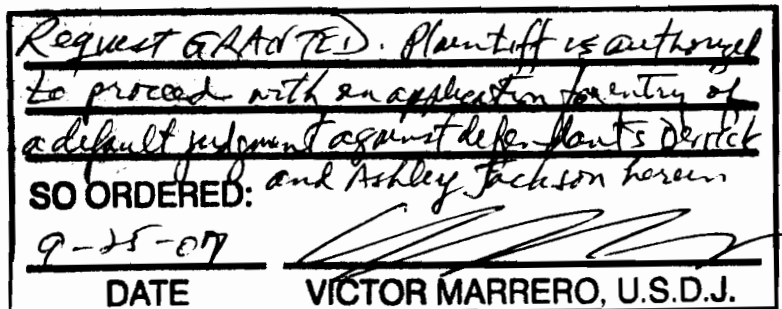 Request GRANTED. Plaintiff is authorized
to proceed with an application for entry of
a default judgment against defendants Derrick
and Ashley Jackson herein
SO ORDERED:
9-25-07
DATE VICTOR MARRERO, U.S.D.J.